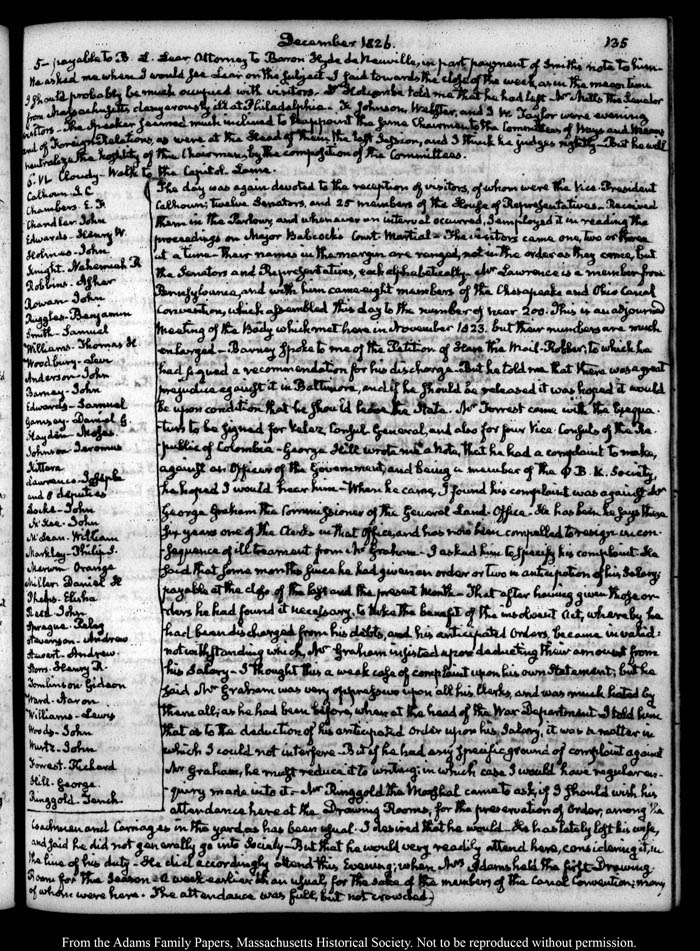 December 1826.
135
5 - payable to B. L. Lear Attorney to Baron Hyde de Neuville, in part payment of Smiths note to him-
He asked me when I would see Lear on the subject. I said towards the close of the week, as in the mean time
I should probably be much occupied with visitors. Holcombe told me that he had left Mr Mills the Senator
from Massachusetts dangerously ill at Philadelphia. F. Johnson, Webster, and J. W. Taylor were evening
visitors - The Speaker seemed much inclined to reappoint the same Chairmen to the Committees of Ways and Means
and of Foreign Relations, as were at the Head of them, the last Session, and I think he judges rightly - But he will
neutralize the hostility of the Chairmen, by the composition of the Committees.
6. VI. Cloudy - Walk to the Capitol. Lame.
Calhoun J. C
Chambers - E. F
Chandler - John
Edwards - Henry W.
Holmes - John
Knight. Nehemiah R
Robbins. Asher
Rowan - John
Ruggles - Benjamin
Smith - Samuel
Williams - Thomas H
Woodbury - Levi
Anderson - John
Barney - John
Edwards - Samuel
Garnsey - Daniel G.
Hayden - Moses
Johnson Jeromus
Kittera
Lawrence - Joseph
and 8 deputies
Locke - John
McKee - John
McLean - William
Markley - Philip S.
Merwin Orange
Miller Daniel H
Phelps - Elisha
Reed John
Sprague - Peleg
Stevenson - Andrew
Stewart - Andrew
Storrs - Henry R.
Tomlinson Gideon
Ward - Aaron
Williams - Lewis
Woods - John
Wurtz - John
Forrest - Richard
Hill - George
Ringgold - Tench.
The day was again devoted to the reception of visitors, of whom were the Vice-President
Calhoun; twelve Senators, and 25 members of the House of Representatives. Received
them in the Parlour, and whenever an interval occurred, I employed it in reading the
proceedings on Major Babcock's Court Martial - The visitors came one, two or three
at a time - Their names in the margin are ranged, not in the order as they came, but
the Senators and Representatives, each alphabetically - Mr Lawrence is a member from
Pennsylvania, and with him came eight members of the Chesapeake and Ohio Canal
Convention, which assembled this day to the number of near 200. This is an adjourned
Meeting of the Body which met here in November 1823. but their numbers are much
enlarged - Barney spoke to me of the Petition of Hare the Mail-Robber; to which he
had signed a recommendation for his discharge - But he told me that there was a great
prejudice against it in Baltimore, and if he should be released it was hoped it would
be upon condition that he should leave the State. Mr Forrest came with the Exequa-
turs to be signed for Velez, Consul General, and also for four Vice-Consuls of the Re-
public of Colombia - George Hill wrote me a Note, that he had a complaint to make,
against an Officer of the Government, and being a member of the Φ B. K. Society,
he hoped I would hear him - When he came, I found his complaint was against Mr
George Graham the Commissioner of the General Land-Office - He has been he says these
six years one of the Clerks in that Office, and has now been compelled to resign in con-
sequence of ill treatment from Mr Graham - I asked him to specify his complaint. He
said that some months since he had given an order or two in anticipation of his Salary,
payable at the close of the last and the present Month - That after having given those or-
ders he had found it necessary to take the benefit of the insolvent Act, whereby he
had been discharged from his debts, and his anticipated Orders, became invalid:
notwithstanding which, Mr Graham insisted upon deducting their amount from
his Salary - I thought this a weak case of complaint upon his own Statement; but he
said Mr Graham was very oppressive upon all his Clerks, and was much hated by
them all; as he had been before, when at the head of the War Department. I told him
that as to the deduction of his anticipated Order upon his Salary, it was a matter in
which I could not interfere - But if he had any specific ground of complaint against
Mr Graham, he must reduce it to writing; in which case I would have regular en-
quiry made into it - Mr Ringgold the Marshal came to ask if I should wish his
attendance here at the Drawing Rooms, for the preservation of Order, among the
Coachmen and Carriages in the yard as has been usual. I desired that he would - He has lately lost his wife,
and said he did not generally go into Society - But that he would very readily attend here, considering it, in
the line of his duty - He did accordingly attend this Evening; when Mrs Adams held the first Drawing
Room for the Season - A week earlier than usual, for the sake of the members of the Canal Convention; many
of whom were here - The attendance was full, but not crowded.
From the Adams Family Papers, Massachusetts Historical Society. Not to be reproduced without permission.